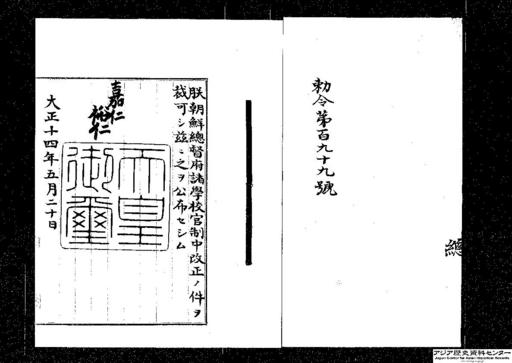 勅令第百九十九號
總
朕朝鮮總督府諸學校官制中改正ノ件ヲ
裁可シ茲ニ之ヲ公布セシム
嘉仁
裕仁
天皇
御璽
大正十四年五月二十日
アジア歴史資料センター
Japan Center for Asian Historical Records